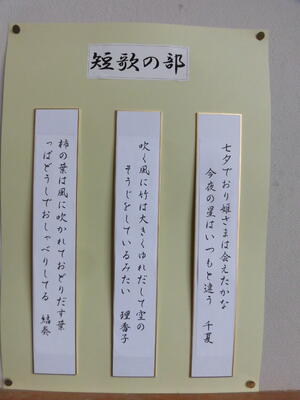 短歌の部
七夕でおり姫さまは会えたかな
今夜の星はいつもと違う
千夏
吹く風に竹は大きくゆれだして空の
そうじをしているみたい
理香子
柿の葉は風に吹かれておどりだす葉
っぱどうしでおしゃべりしてる
結葵